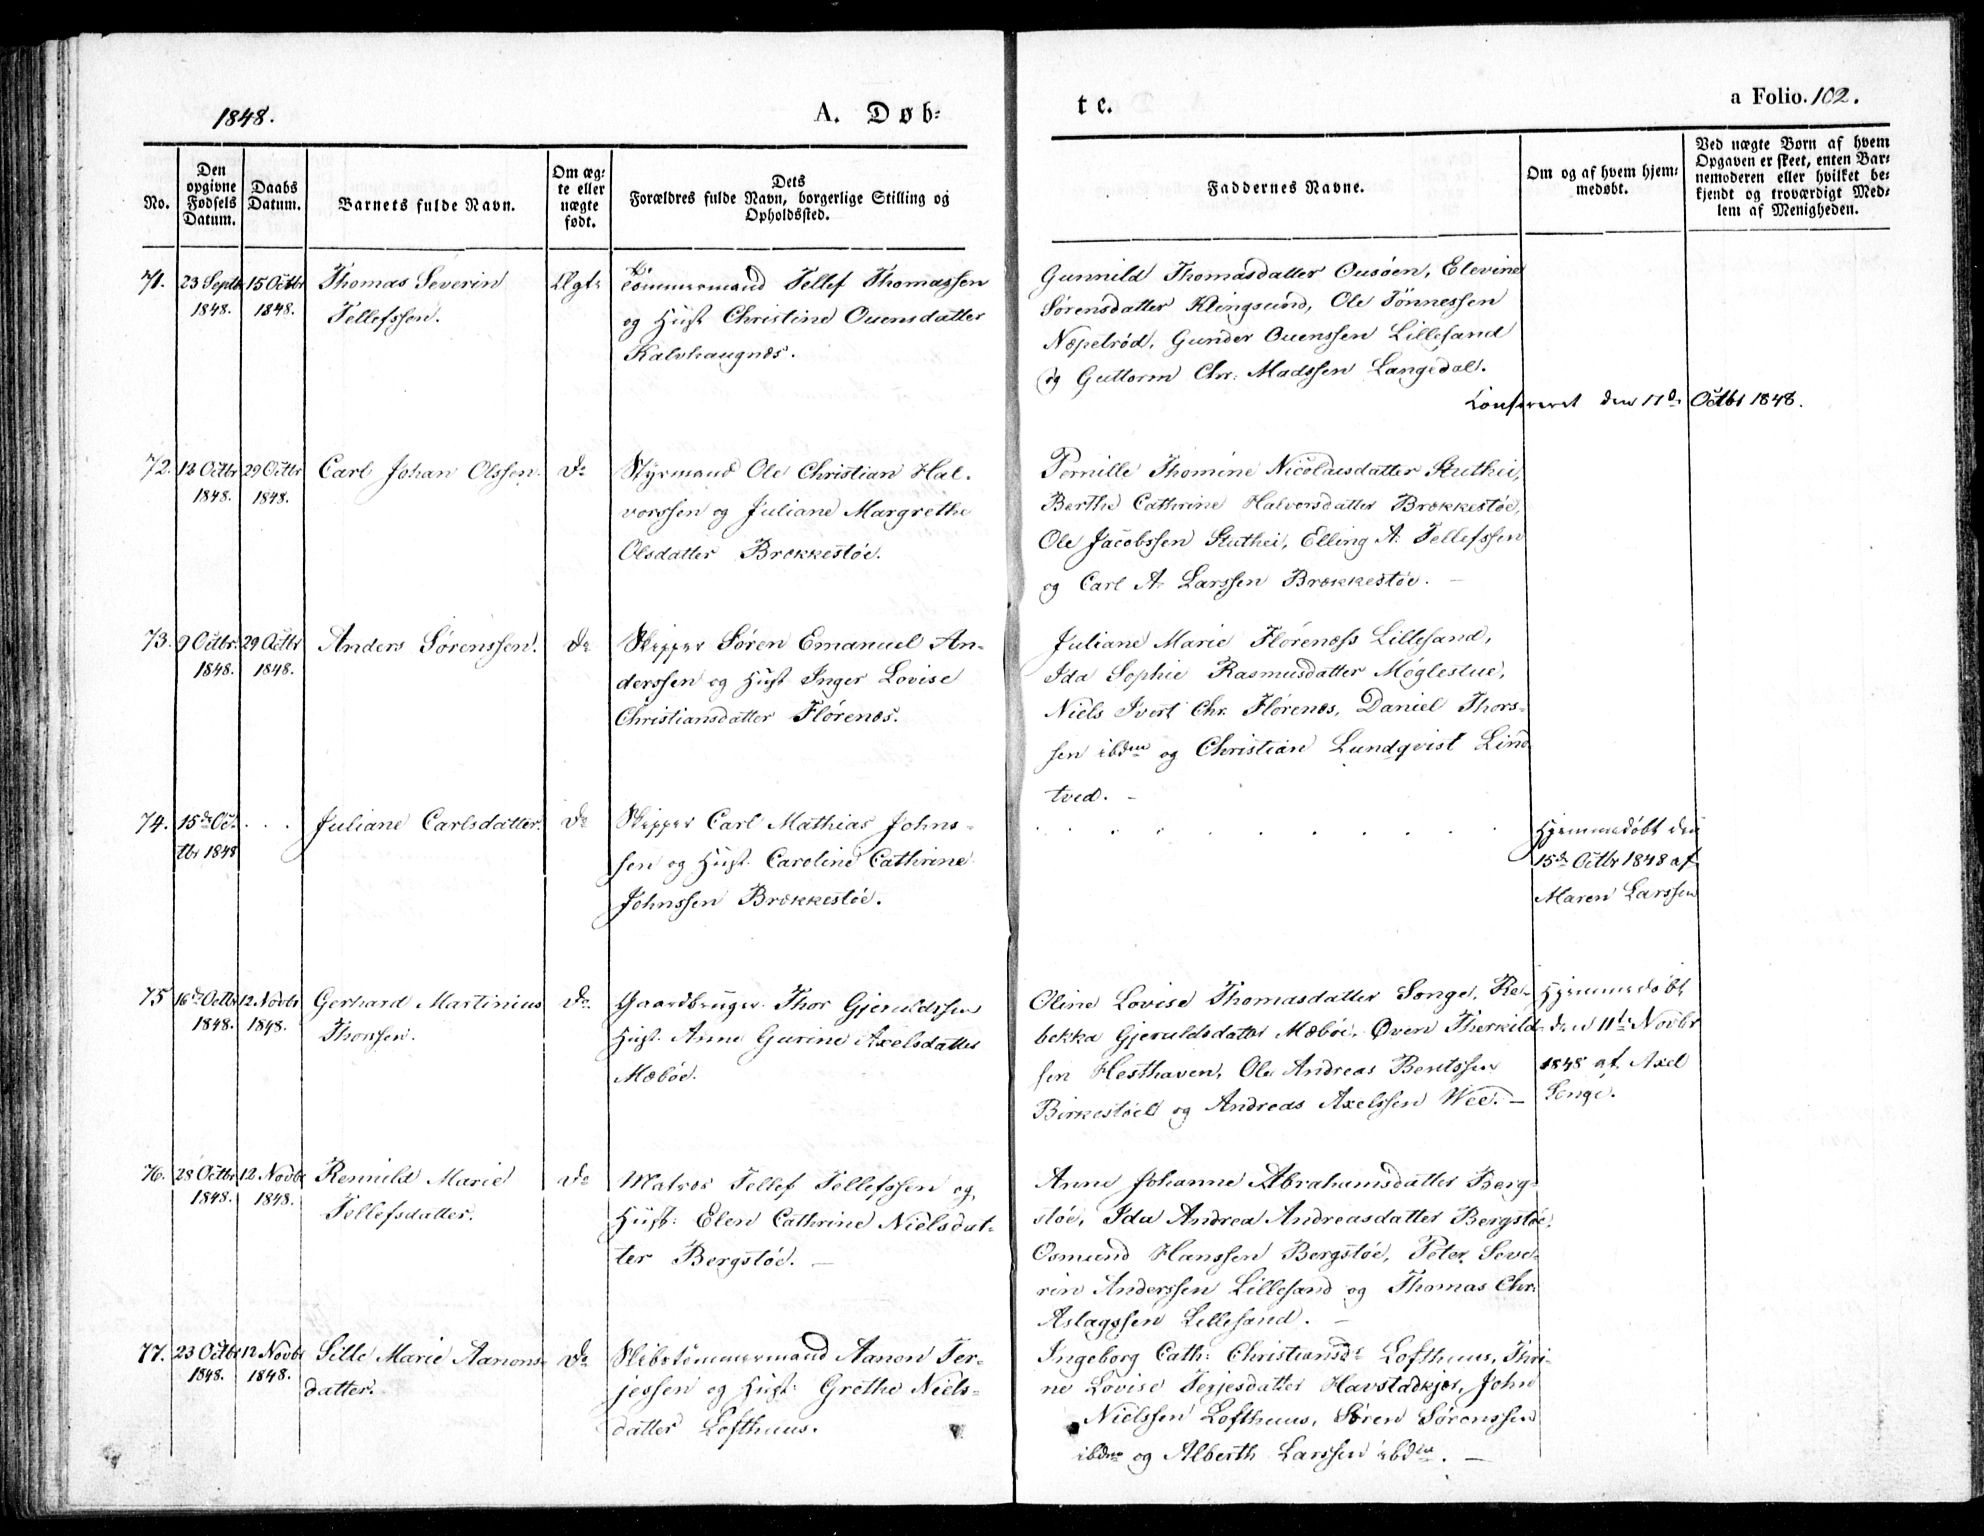 1848.
A. Døb-
te.
a Folio. 102.
No.
Den opgivne Fødsels Datum.
Daabs Datum.
Barnets fulde Navn.
Om ægte eller uægte født.
Dets Forældres fulde Navn, borgerlige Stilling og Opholdssted.
Faddernes Navne.
Om og af hvem hjemmedøbt.
Ved uægte Børn af hvem Opgaven er skeet, enten Barnemoderen eller hvilket bekjendt og troværdigt Medlem af Menigheden.
71.
23 Septbr
1848.
15 Octbr
1848.
Thomas Severin
Tellefssen.
Ægte
Tømmermand Tellef Thomassen
og Hust Christine Ouensdatter
Kalvhaugnæs.
Gunnild Thomasdatter Ousøen, Elevine
Sørensdatter Klingsund, Ole Tønnessen
Næpetrød, Gunder Ouenssen Lillesand
og Guttorm Chr: Madssen Langedal.
Confereret den 17de Octbr 1848.
72.
12 Octbr
1848.
29 Octbr
1848.
Carl Johan Olssen.
Do
Styrmand Ole Christian Hal-
vorssen og Juliane Margrethe
Olsdatter Brækkestøe.
Pernille Thomine Nicolaisdatter Stuthei,
Berthe Cathrine Halvorsdatter Brækkestøe,
Ole Jacobssen Stuthei, Elling A. Tellefssen
og Carl A. Larssen Brækkestøe. –
73.
9 Octbr.
1848.
29 Octbr
1848.
Anders Sørenssen.
Do
Skipper Søren Emanuel An-
derssen og Hust Inger Lovise
Christiansdatter Flørenæs.
Juliane Marie Flørenæss Lillesand,
Ida Sophie Rasmusdatter Møglestue,
Niels Ivert Chr. Flørenæs, Daniel Thors-
sen ibdem og Christian Lundqvist Lind
tved. –
74.
15de Oc-
tbr 1848
. . .
Juliane Carlsdatter.
Do
Skipper Carl Mathias Johns-
sen og Hust. Caroline Cathrine
Johnssen Brækkestøe.
. . . . . . . . . . . .
Hjemmedøbt den
15de Octbr 1848 af
Maren Larssen
75
16de Octbr
1848.
12 Novbr
1848.
Gerhard Martinius
Thorssen.
Do
Gaardbruger Thor Gjeruldssen
Hust. Anne Gurine Axelsdatter
Mæbøe.
Oline Lovise Thomasdatter Songe, Re-
bekka Gjeruldsdatter Mæbøe, Øven Therkild-
sen Hesthaven, Ole Andreas Bentssen
Birkestøel og Andreas Axelssen Wee. –
Hjemmedøbt
den 11te Novbr
1848 af Axel
Songe.
76.
28 Octbr
1848.
12 Novbr
1848.
Rennild Marie
Tellefsdatter.
Do
Matros Tellef Tellefssen og
Hust: Elen Cathrine Nielsdat-
ter Bergstøe. –
Anne Johanne Abrahamsdatter Berg-
støe, Ida Andrea Andreasdatter Bergstøe,
Osmund Hanssen Bergstøe, Peter Seve-
rin Anderssen Lillesand og Thomas Chr:
Aslagssen Lillesand. –
77.
23 Octbr
1848.
12 Novbr
1848.
Sille Marie Aanons-
datter.
Do
Skibstømmermand Aanon Ter-
jessen og Hust: Grethe Niels-
datter Lofthuus.
Ingeborg Cath: Christiansdr Lofthuus, Thri-
ne Lovise Terjesdatter Havstadkjær, John
Nielssen Lofthuus, Søren Sørenssen
ibdm og Alberth Larssen ibdem. –